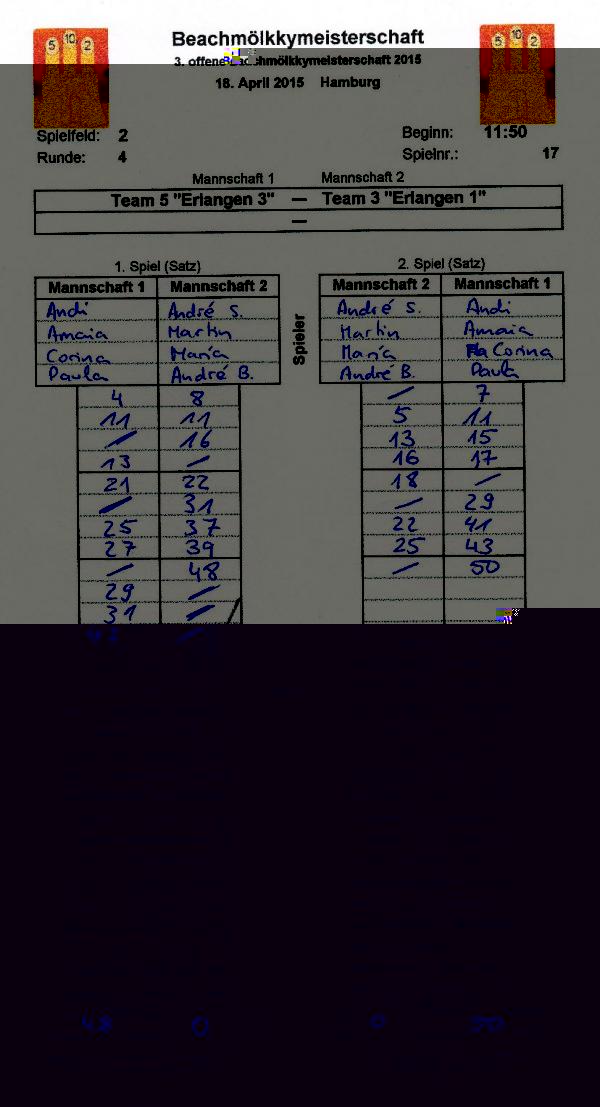 Beachmölkkymeisterschaft
5 10 2
5 10 2
3. offene Beachmölkkymeisterschaft 2015
18. April 2015 Hamburg
Spielfeld: 2 Beginn: 11:50
Runde: 4 Spielnr.: 17
Mannschaft 1 Mannschaft 2
Team 5 "Erlangen 3" — Team 3 "Erlangen 1"
—
1. Spiel (Satz) 2. Spiel (Satz)
Mannschaft 1 Mannschaft 2 Spieler Mannschaft 2 Mannschaft 1
Andi André S. André S. Andi
Amaia Martin Martin Amaia
Corina María María Corina
Paula André B. André B. Paula
4 8 / 7
11 11 5 11
/ 16 13 15
13 / 16 17
21 22 18 /
/ 31 / 29
25 37 22 41
27 39 25 43
/ 48 / 50
29 /
31 /
48 0 0 50